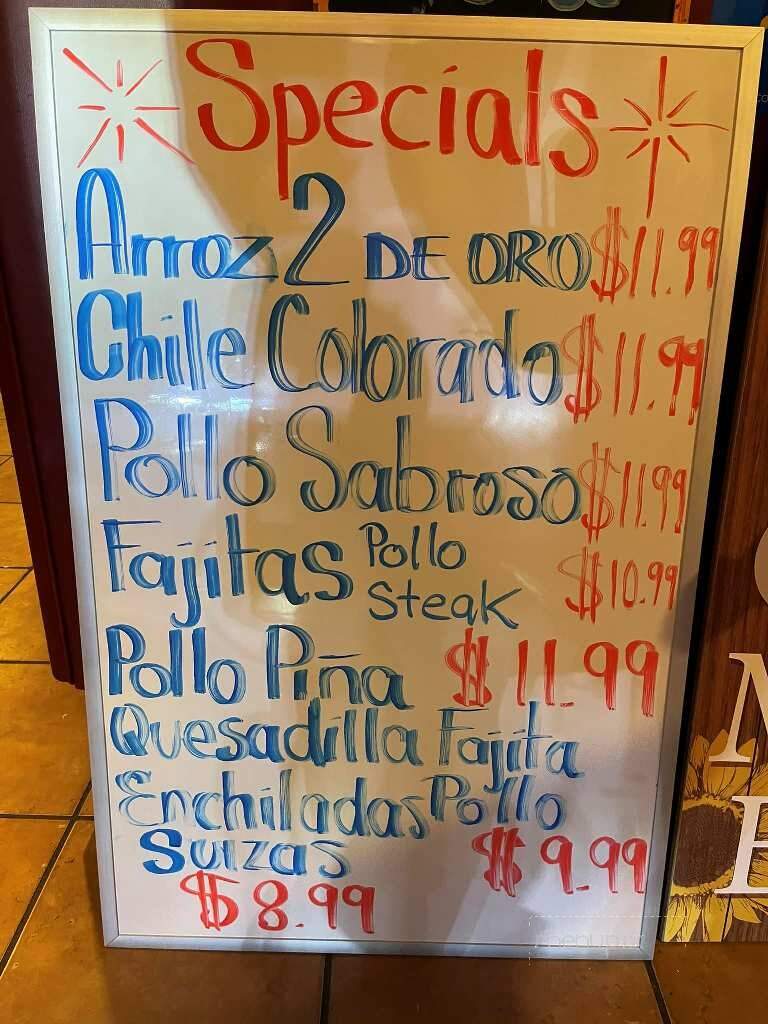 Specials
Arroz 2 DE ORO $11.99
Chile Colorado $11.99
Pollo Sabroso $11.99
Fajitas Pollo Steak $10.99
Pollo Piña $11.99
Quesadilla Fajita
Enchiladas Pollo
Suizas $9.99
$8.99
M
E